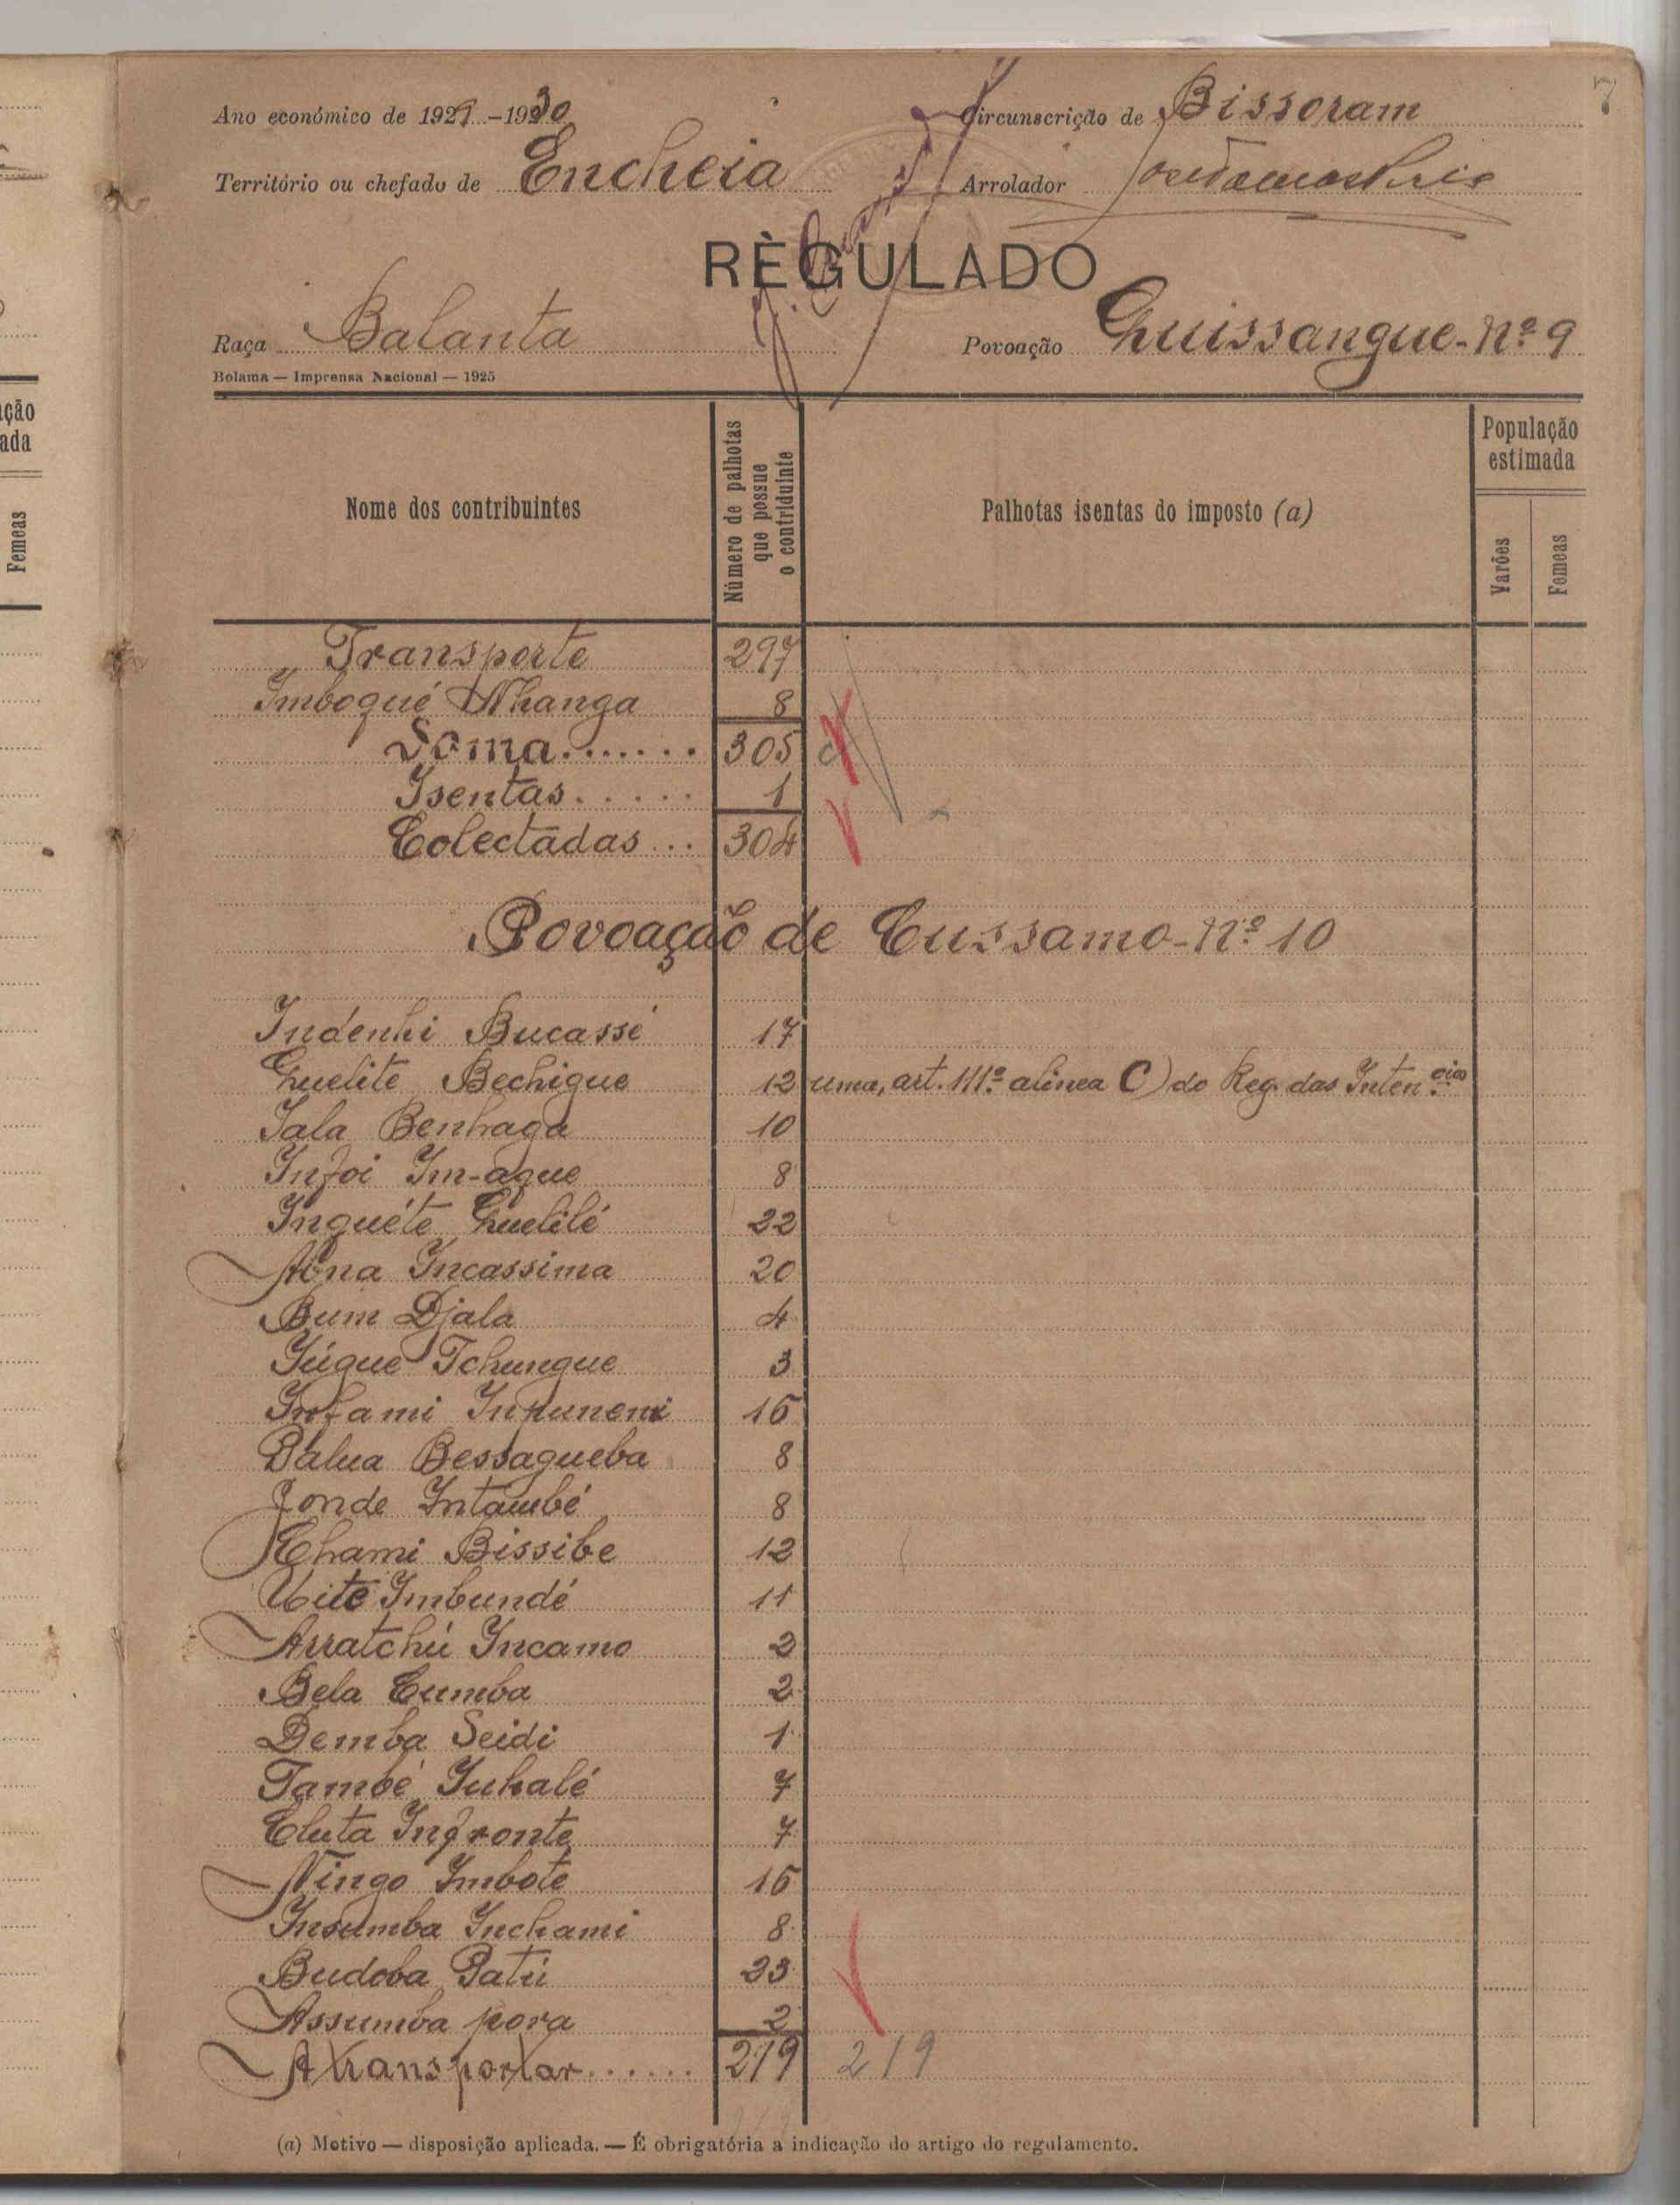 7
Ano económico de 1929-1930
Circunscrição de Bissoram
Território ou chefado de Encheia
Arrolador
RÈGULADO
Raça Balanta
Povoação Chuissangue-Nº 9
Bolama — Imprensa Nacional — 1925
Nome dos contribuintes
Número de palhotas que possue o contriduinte
Palhotas isentas do imposto (a)
População estimada
Varões
Femeas
ação
ada
Femeas
Transporte 297
Imboqué Nhanga 8
Soma....... 305
Isentas..... 1
Colectadas... 304
Povoação de Cussamo-Nº 10
Indenhi Bucassé 17
Chuelite Bechigue 12 uma, art. 111º alinea C) do Reg. das Inten.cias
Iala Benhaga 10
Infoi Im-ague 8
Inquéte Chuelilé 22
Abna Incassima 20
Bum Djala 4
Iúgue Tchungue 3
Infami 16
Balua Bessagueba 8
Fonde Intambé 8
Chami Bissibe 12
Uite Imbundé 11
Arratchú Incamo 2
Bela Cumba 2
Demba Seidi 1
També Iuhalé 7
Cluta Infronte 7
Ningo Imbote 16
Insumba Inchami 8
Budoba Patú 23
Assumba pora 2
A transportar...... 219 219
(a) Motivo — disposição aplicada. — É obrigatória a indicação do artigo do regulamento.